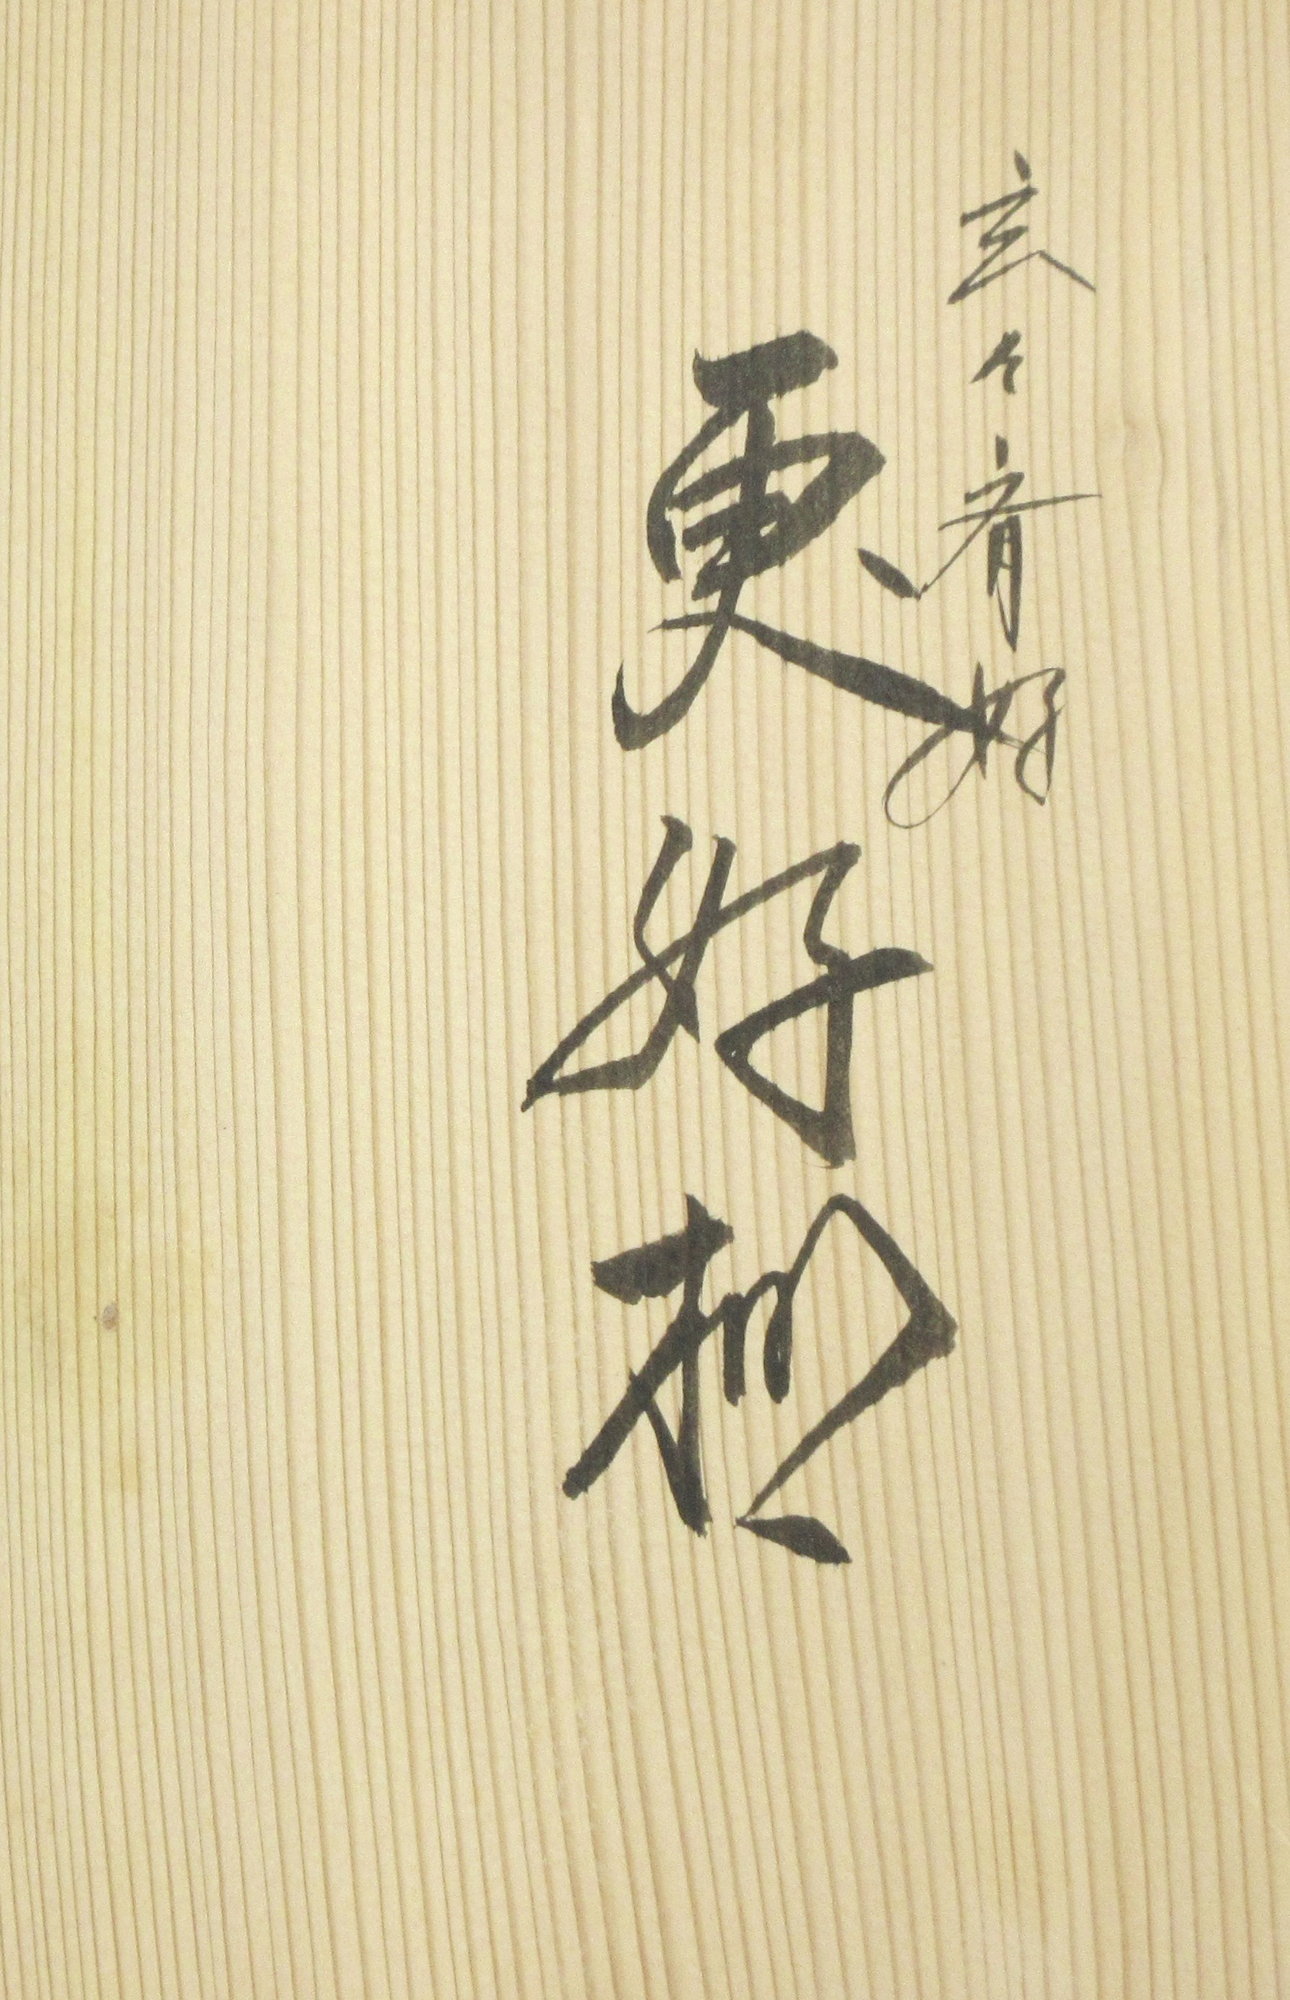 玄々斎好
更好棚